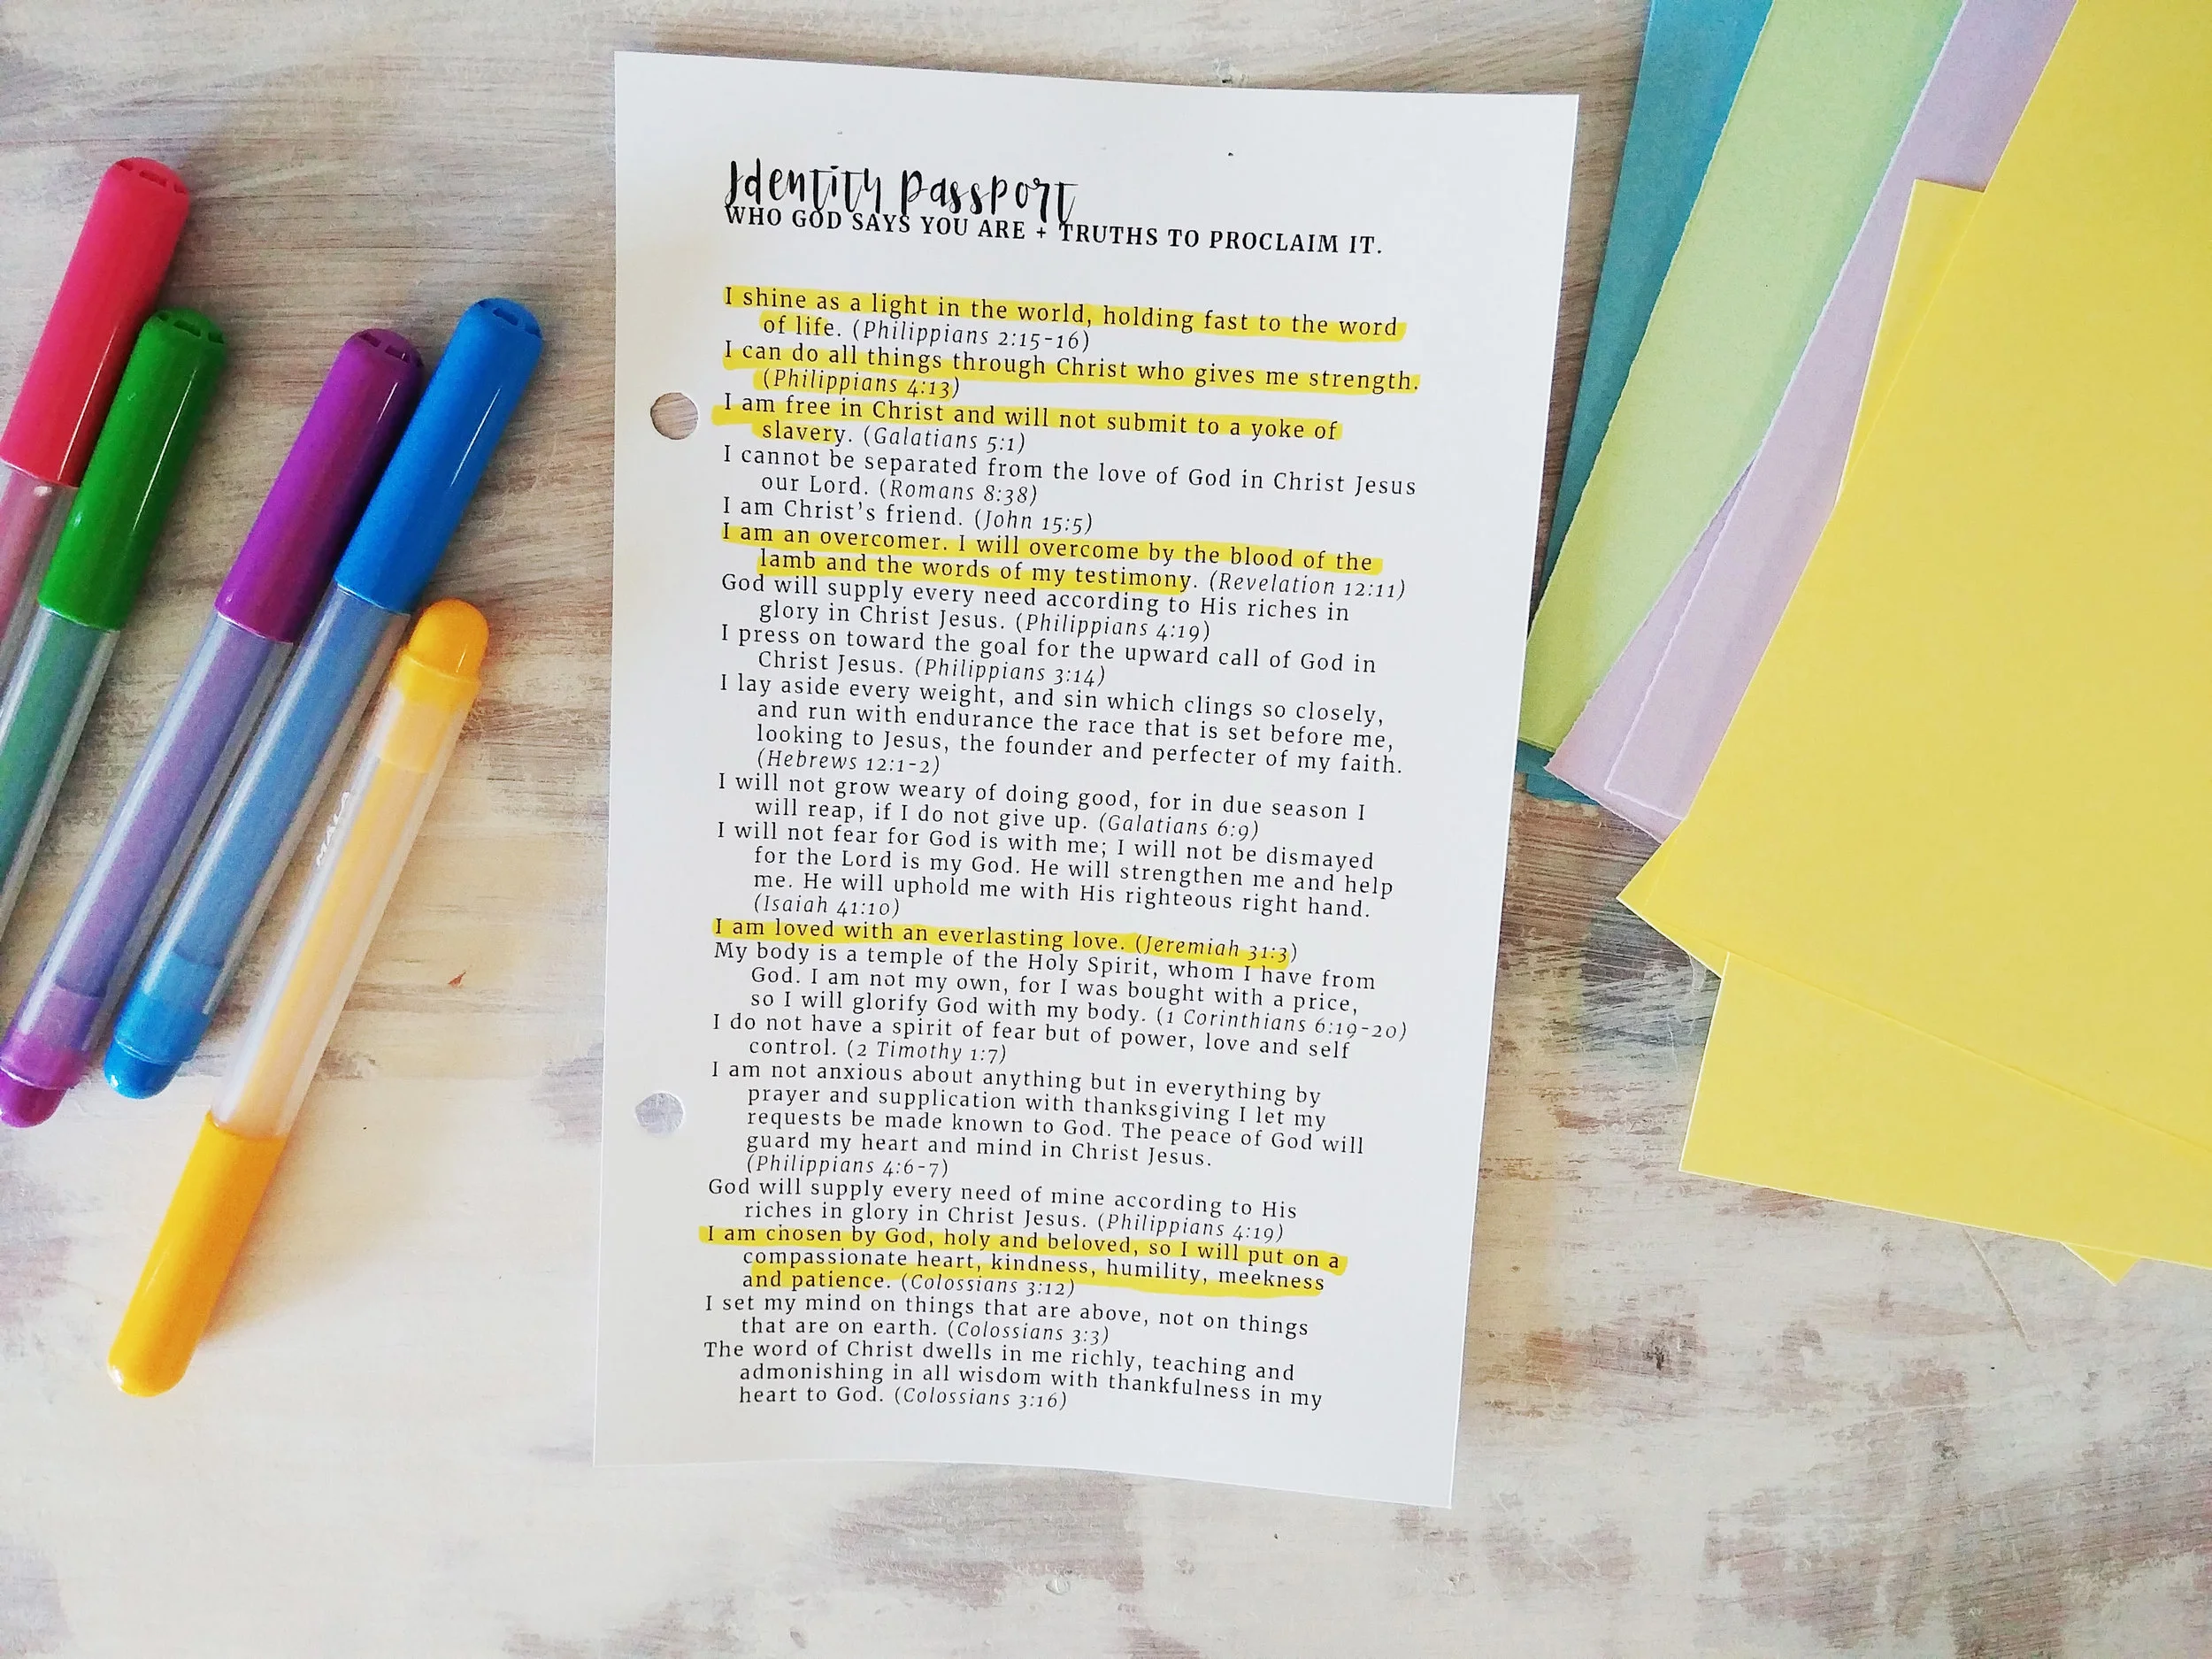 Identity Passport
WHO GOD SAYS YOU ARE + TRUTHS TO PROCLAIM IT.
I shine as a light in the world, holding fast to the word
of life. (Philippians 2:15-16)
I can do all things through Christ who gives me strength.
(Philippians 4:13)
I am free in Christ and will not submit to a yoke of
slavery. (Galatians 5:1)
I cannot be separated from the love of God in Christ Jesus
our Lord. (Romans 8:38)
I am Christ's friend. (John 15:5)
I am an overcomer. I will overcome by the blood of the
lamb and the words of my testimony. (Revelation 12:11)
God will supply every need according to His riches in
glory in Christ Jesus. (Philippians 4:19)
I press on toward the goal for the upward call of God in
Christ Jesus. (Philippians 3:14)
I lay aside every weight, and sin which clings so closely,
and run with endurance the race that is set before me,
looking to Jesus, the founder and perfecter of my faith.
(Hebrews 12:1-2)
I will not grow weary of doing good, for in due season I
will reap, if I do not give up. (Galatians 6:9)
I will not fear for God is with me; I will not be dismayed
for the Lord is my God. He will strengthen me and help
me. He will uphold me with His righteous right hand.
(Isaiah 41:10)
I am loved with an everlasting love. (Jeremiah 31:3)
My body is a temple of the Holy Spirit, whom I have from
God. I am not my own, for I was bought with a price,
so I will glorify God with my body. (1 Corinthians 6:19-20)
I do not have a spirit of fear but of power, love and self
control. (2 Timothy 1:7)
I am not anxious about anything but in everything by
prayer and supplication with thanksgiving I let my
requests be made known to God. The peace of God will
guard my heart and mind in Christ Jesus.
(Philippians 4:6-7)
God will supply every need of mine according to His
riches in glory in Christ Jesus. (Philippians 4:19)
I am chosen by God, holy and beloved, so I will put on a
compassionate heart, kindness, humility, meekness
and patience. (Colossians 3:12)
I set my mind on things that are above, not on things
that are on earth. (Colossians 3:3)
The word of Christ dwells in me richly, teaching and
admonishing in all wisdom with thankfulness in my
heart to God. (Colossians 3:16)